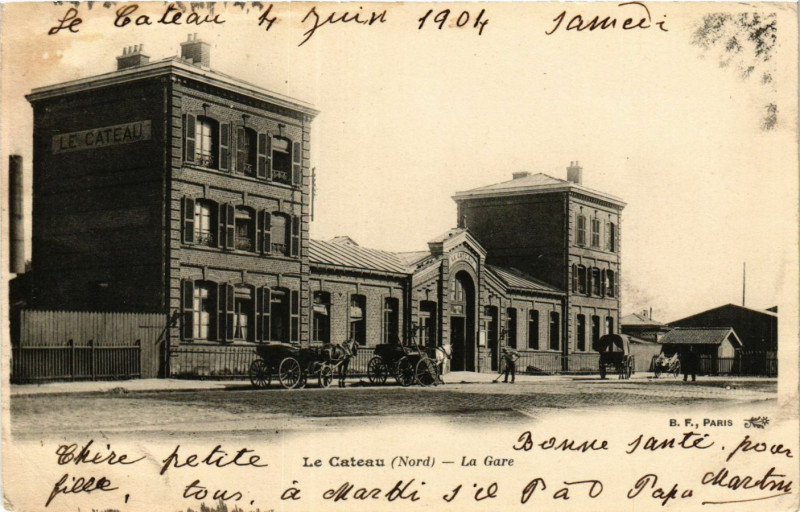 Le Cateau 4 Juin 1904 Samedi
LE CATEAU
B. F., PARIS
Le Cateau (Nord) — La Gare
Bonne santé, pour
Chère petite
fille, tous, à Mardi s'il Papa